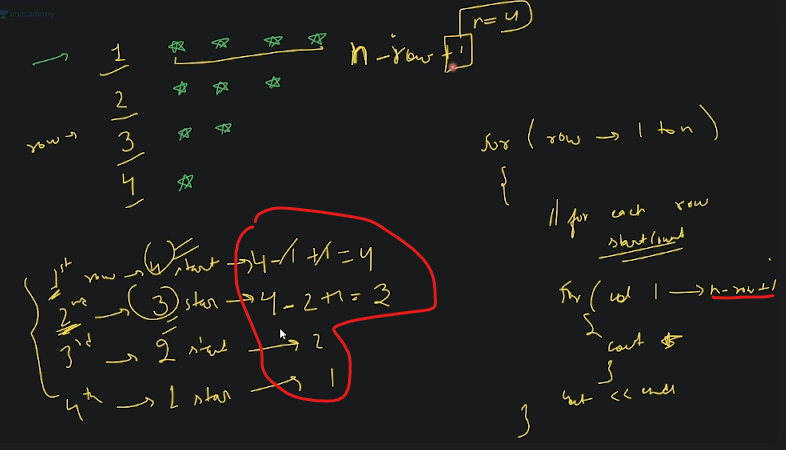 unacademy
r = 4
1 ☆ ☆ ☆ ☆ n - row + 1
2 ☆ ☆ ☆
row → 3 ☆ ☆
4 ☆
1st row → 4 start → 4 - 1 + 1 = 4
2nd → 3 star → 4 - 2 + 1 = 3
3rd → 2 start → 2
4th → 1 star → 1
for ( row → 1 to n )
{
// for each row
start count
for ( col 1 → n - row + 1
{
cout ☆
}
cout << endl
}